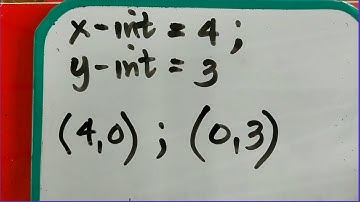 x-int = 4 ;
y-int = 3
(4,0) ; (0,3)